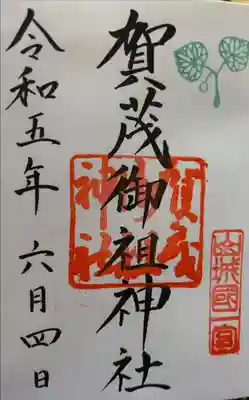 賀茂御祖神社
令和五年 六月四日
山城國一宮
賀茂御祖神社